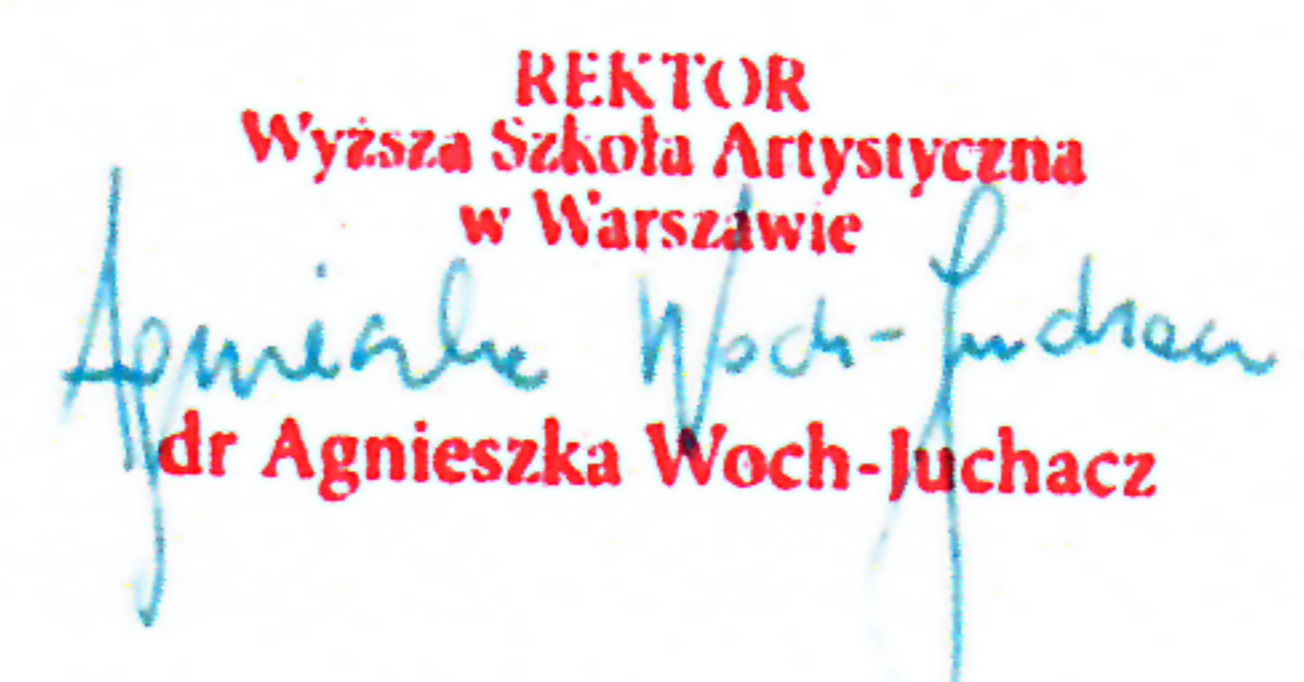 REKTOR
Wyższa Szkoła Artystyczna
w Warszawie
Agnieszka Woch-Juchacz
dr Agnieszka Woch-Juchacz